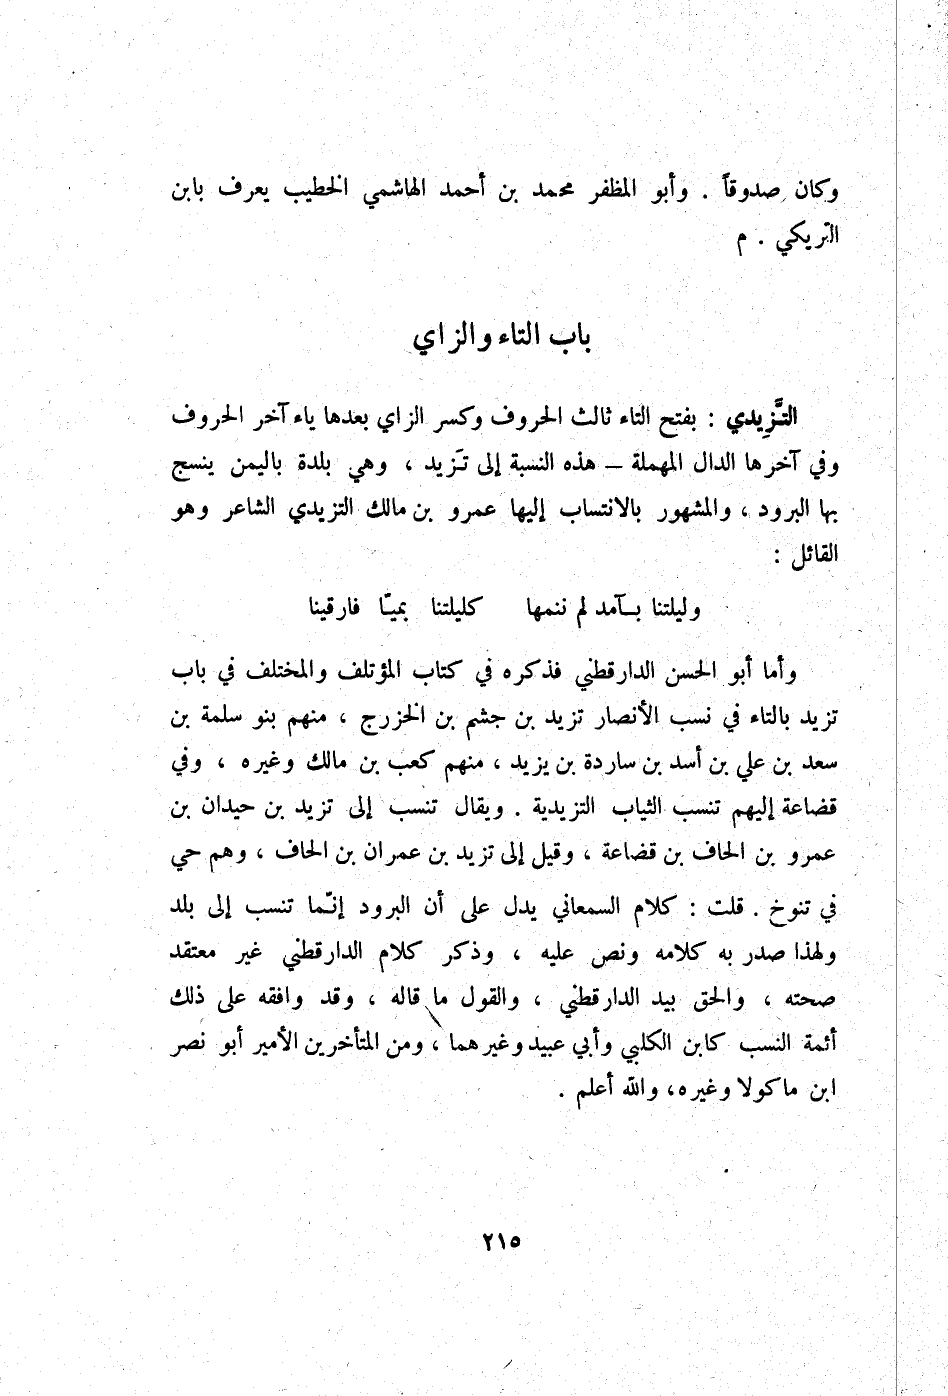 وكان صدوقاً . وأبو المظفر محمد بن أحمد الهاشمي الخطيب يعرف بابن
التّريكي . م
باب التاء والزاي
التَّزِيدي : بفتح التاء ثالث الحروف وكسر الزاي بعدها ياء آخر الحروف
وفي آخرها الدال المهملة – هذه النسبة إلى تَزيد ، وهي بلدة باليمن ينسج
بها البرود ، والمشهور بالانتساب إليها عمرو بن مالك التزيدي الشاعر وهو
القائل :
وليلتنا بـآمد لم ننمها كليلتنا بميّا فارقينا
وأما أبو الحسن الدارقطني فذكره في كتاب المؤتلف والمختلف في باب
تزيد بالتاء في نسب الأنصار تزيد بن جشم بن الخزرج ، منهم بنو سلمة بن
سعد بن علي بن أسد بن ساردة بن يزيد ، منهم كعب بن مالك وغيره ، وفي
قضاعة إليهم تنسب الثياب التزيدية . ويقال تنسب إلى تزيد بن حيدان بن
عمرو بن الحاف بن قضاعة ، وقيل إلى تزيد بن عمران بن الحاف ، وهم حي
في تنوخ . قلت : كلام السمعاني يدل على أن البرود إنّما تنسب إلى بلد
ولهذا صدر به كلامه ونص عليه ، وذكر كلام الدارقطني غير معتقد
صحته ، والحق بيد الدارقطني ، والقول ما قاله ، وقد وافقه على ذلك
أئمة النسب كابن الكلبي وأبي عبيد وغيرهما ، ومن المتأخرين الأمير أبو نصر
ابن ماكولا وغيره، والله أعلم .
٢١٥